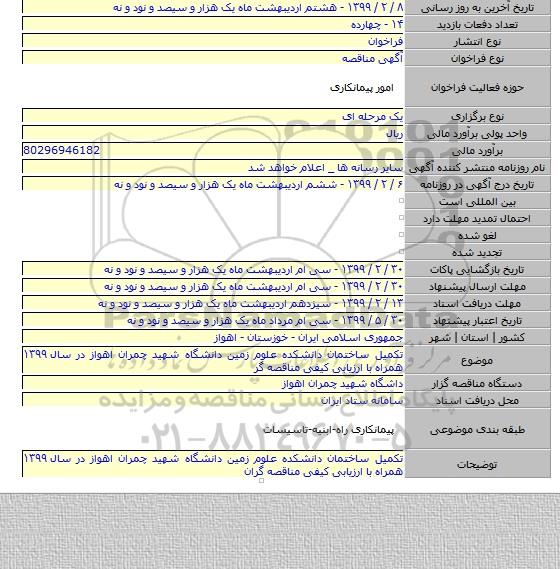 تاریخ آخرین به روز رسانی ۸ / ۲ / ۱۳۹۹ - هشتم اردیبهشت ماه یک هزار و سیصد و نود و نه
تعداد دفعات بازدید ۱۴ - چهارده
نوع انتشار فراخوان
نوع فراخوان آگهی مناقصه
حوزه فعالیت فراخوان امور پیمانکاری
نوع برگزاری یک مرحله ای
واحد پولی برآورد مالی ریال
برآورد مالی 80296946182
نام روزنامه منتشر کننده آگهی سایر رسانه ها _ اعلام خواهد شد
تاریخ درج آگهی در روزنامه ۶ / ۲ / ۱۳۹۹ - ششم اردیبهشت ماه یک هزار و سیصد و نود و نه
بین المللی است
احتمال تمدید مهلت دارد
لغو شده
تجدید شده
تاریخ بازگشایی پاکات ۳۰ / ۲ / ۱۳۹۹ - سی ام اردیبهشت ماه یک هزار و سیصد و نود و نه
مهلت ارسال پیشنهاد ۳۰ / ۲ / ۱۳۹۹ - سی ام اردیبهشت ماه یک هزار و سیصد و نود و نه
مهلت دریافت اسناد ۱۳ / ۲ / ۱۳۹۹ - سیزدهم اردیبهشت ماه یک هزار و سیصد و نود و نه
تاریخ اعتبار پیشنهاد ۳۰ / ۵ / ۱۳۹۹ - سی ام مرداد ماه یک هزار و سیصد و نود و نه
کشور | استان | شهر جمهوری اسلامی ایران - خوزستان - اهواز
موضوع تکمیل ساختمان دانشکده علوم زمین دانشگاه شهید چمران اهواز در سال ۱۳۹۹
همراه با ارزیابی کیفی مناقصه گر
دستگاه مناقصه گزار داشگاه شهید چمران اهواز
محل دریافت اسناد سامانه ستاد ایران
پایگاه اطلاع رسانی مناقصه و مزایده
طبقه بندی موضوعی پیمانکاری راه-ابنیه-تاسیسات
۰۲۱-۸۸۳۴۹۶۷۰-۵
توضیحات تکمیل ساختمان دانشکده علوم زمین دانشگاه شهید چمران اهواز در سال ۱۳۹۹
همراه با ارزیابی کیفی مناقصه گران